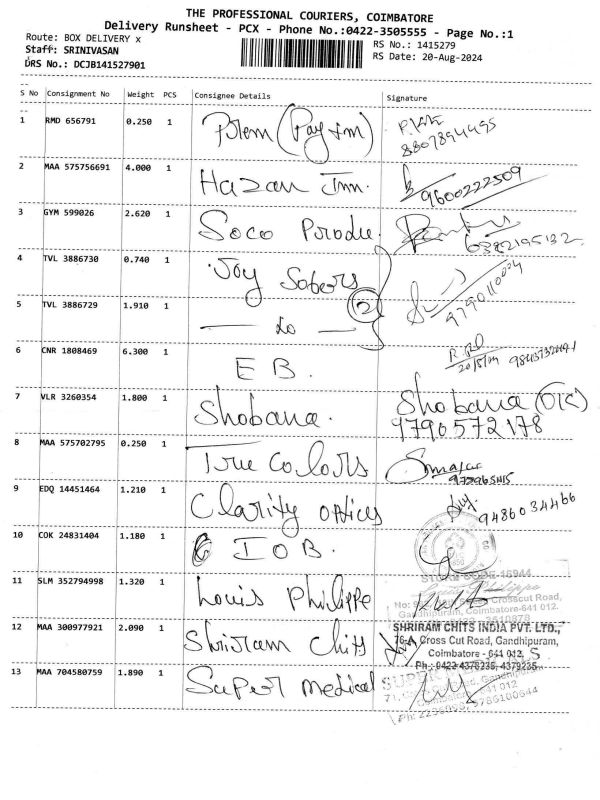 THE PROFESSIONAL COURIERS, COIMBATORE
Delivery Runsheet - PCX - Phone No.:0422-3505555 - Page No.:1
Route: BOX DELIVERY x
RS No.: 1415279
Staff: SRINIVASAN
RS Date: 20-Aug-2024
DRS No.: DCJB141527901
S No Consignment No Weight PCS Consignee Details Signature
1 RMD 656791 0.250 1 Prem (Paytm)
8807894495
2 MAA 575756691 4.000 1 Hazan Inn. 9600222509
3 GYM 599026 2.620 1 Soco Produ. 6382195132
4 TVL 3886730 0.740 1 Joy Sobers
2 9790110004
5 TVL 3886729 1.910 1 — do —
6 CNR 1808469 6.300 1 E B.
7 VLR 3260354 1.800 1 Shobana. Shobana
9790572178
8 MAA 575702795 0.250 1 True Colors
9 EDQ 14451464 1.210 1 Clarity offices 9486034466
10 COK 24831404 1.180 1 I O B.
STORE CODE-16944
11 SLM 352794998 1.320 1 Louis Philippe
Crosscut Road,
Gandhipuram, Coimbatore-641 012.
12 MAA 300977921 2.090 1 Shriram Chits SHRIRAM CHITS INDIA PVT. LTD.,
76-A Cross Cut Road, Gandhipuram,
Coimbatore - 641 012.
Ph : 0422-4378235, 4379235
13 MAA 704580759 1.890 1 Super Medical